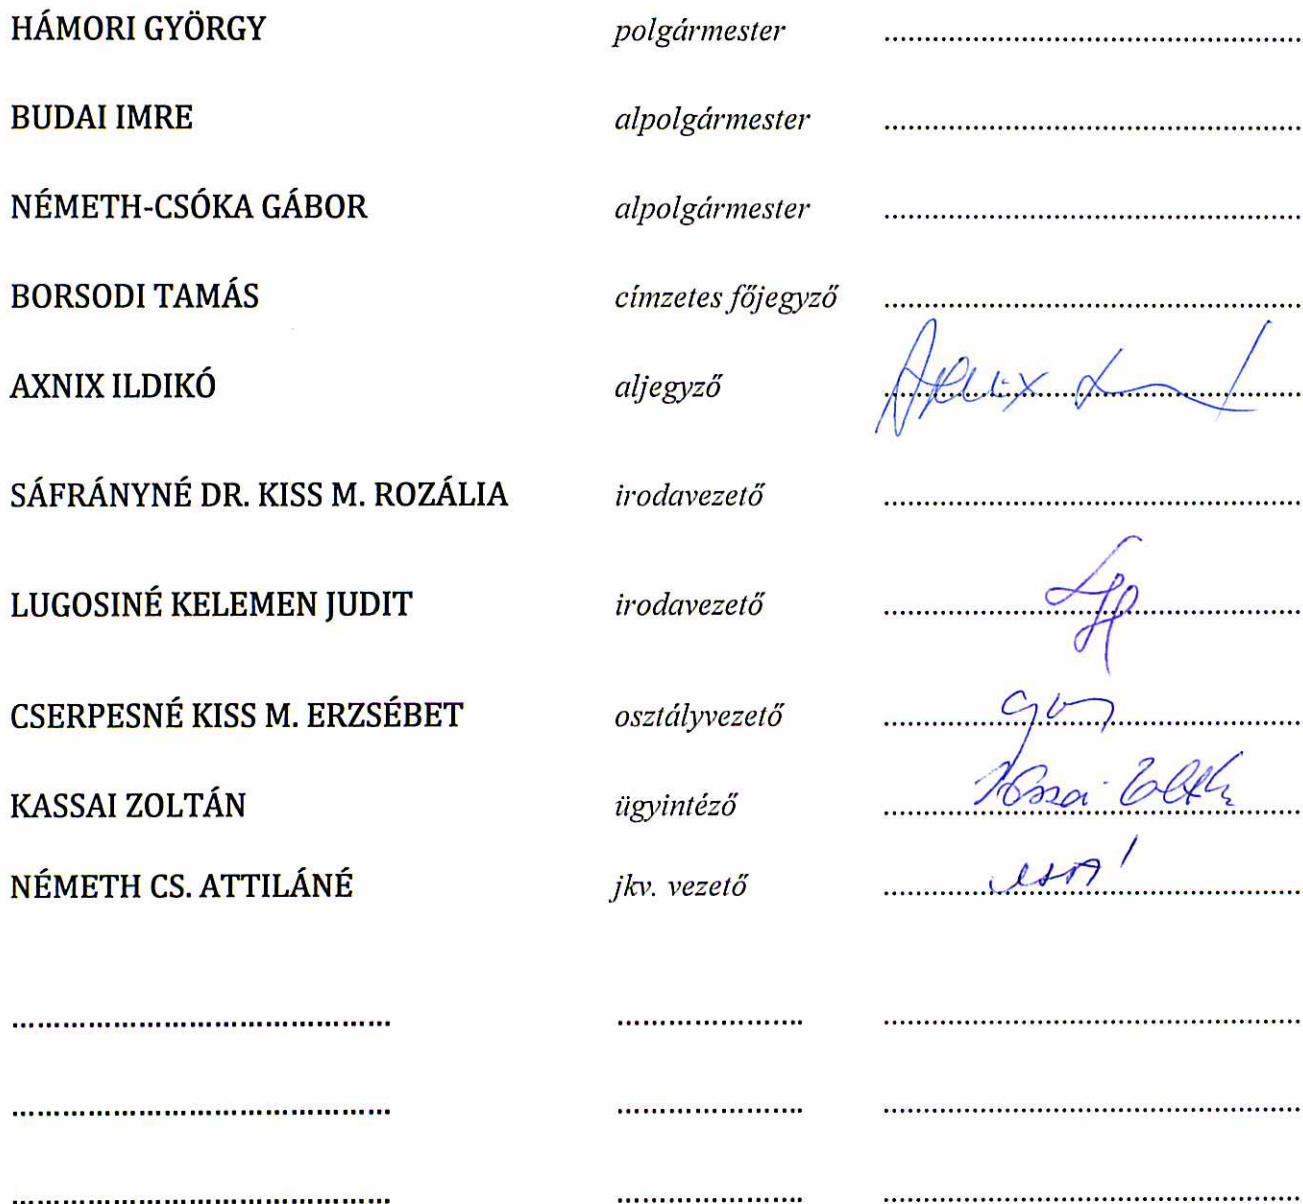 HÁMORI GYÖRGY polgármester ................................................
BUDAI IMRE alpolgármester ................................................
NÉMETH-CSÓKA GÁBOR alpolgármester ................................................
BORSODI TAMÁS címzetes főjegyző ................................................
AXNIX ILDIKÓ aljegyző Axnix
SÁFRÁNYNÉ DR. KISS M. ROZÁLIA irodavezető ................................................
LUGOSINÉ KELEMEN JUDIT irodavezető
CSERPESNÉ KISS M. ERZSÉBET osztályvezető
KASSAI ZOLTÁN ügyintéző Kassai Zoltán
NÉMETH CS. ATTILÁNÉ jkv. vezető